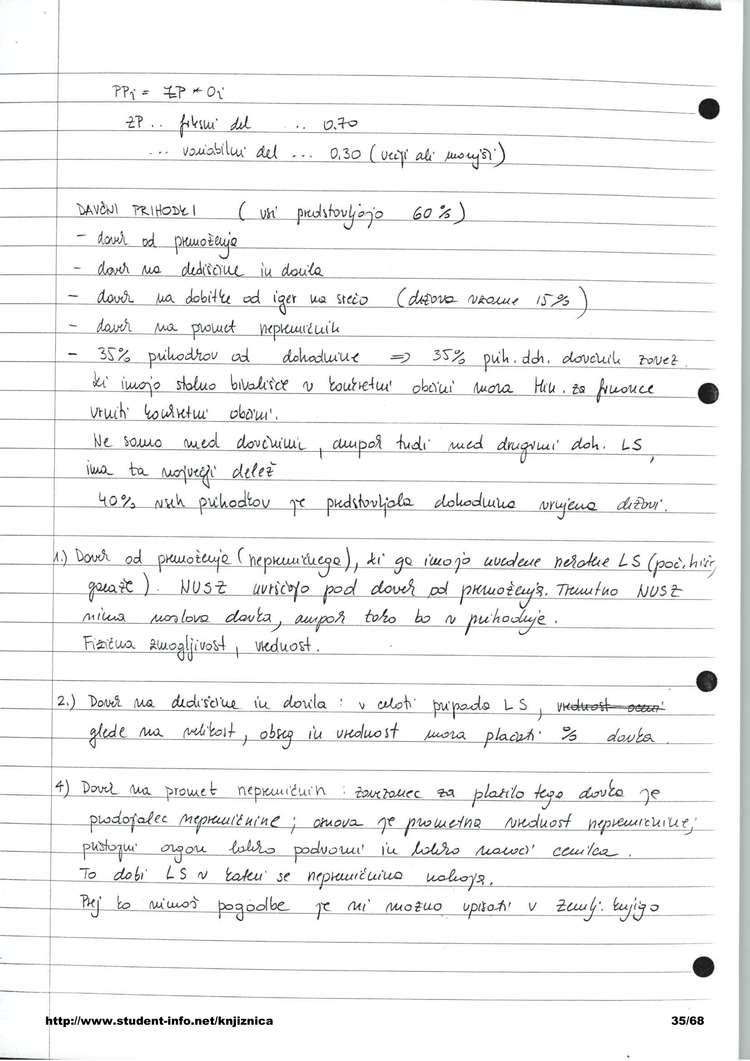 PPi = ZP * Oi
ZP .. fiksni del ... 0.70
... variabilni del ... 0,30 (večji ali manjši)
DAVČNI PRIHODKI (vsi predstavljajo 60 %)
- davek od premoženja
- davek na dediščine in darila
- davek na dobitke od iger na srečo (država vzame 15%)
- davek na promet nepremičnin
- 35% prihodkov od dohodnine => 35% prih. doh. davčnih zavez.
ki imajo stalno bivališče v konkretni občini mora Min. za finance
vrniti konkretni občini.
Ne samo med davčnimi, ampak tudi med drugimi doh. LS,
ima ta največji delež
40% vseh prihodkov je predstavljala dohodnina vrnjena državi.
1.) Davek od premoženja (nepremičnega), ki ga imajo uvedene nekatere LS (poč. hiše,
garaže). NUSZ uvrščajo pod davek od premoženja. Trenutno NUSZ
nima naslova davka, ampak tako bo v prihodnje.
Fizična zmogljivost, vrednost.
2.) Davek na dediščine in darila : v celoti pripada LS, vrednost oceni
glede na velikost, obseg in vrednost mora plačati % davka
4) Davek na promet nepremičnin : zavezanec za plačilo tega davka je
prodajalec nepremičnine ; osnova je prometna vrednost nepremičnine;
pristojni organ lahko podvomi in lahko naroči cenilca.
To dobi LS v kateri se nepremičnina nahaja.
Prej ko nimaš pogodbe je ni možno vpisati v zemlj. knjigo
http://www.student-info.net/knjiznica
35/68